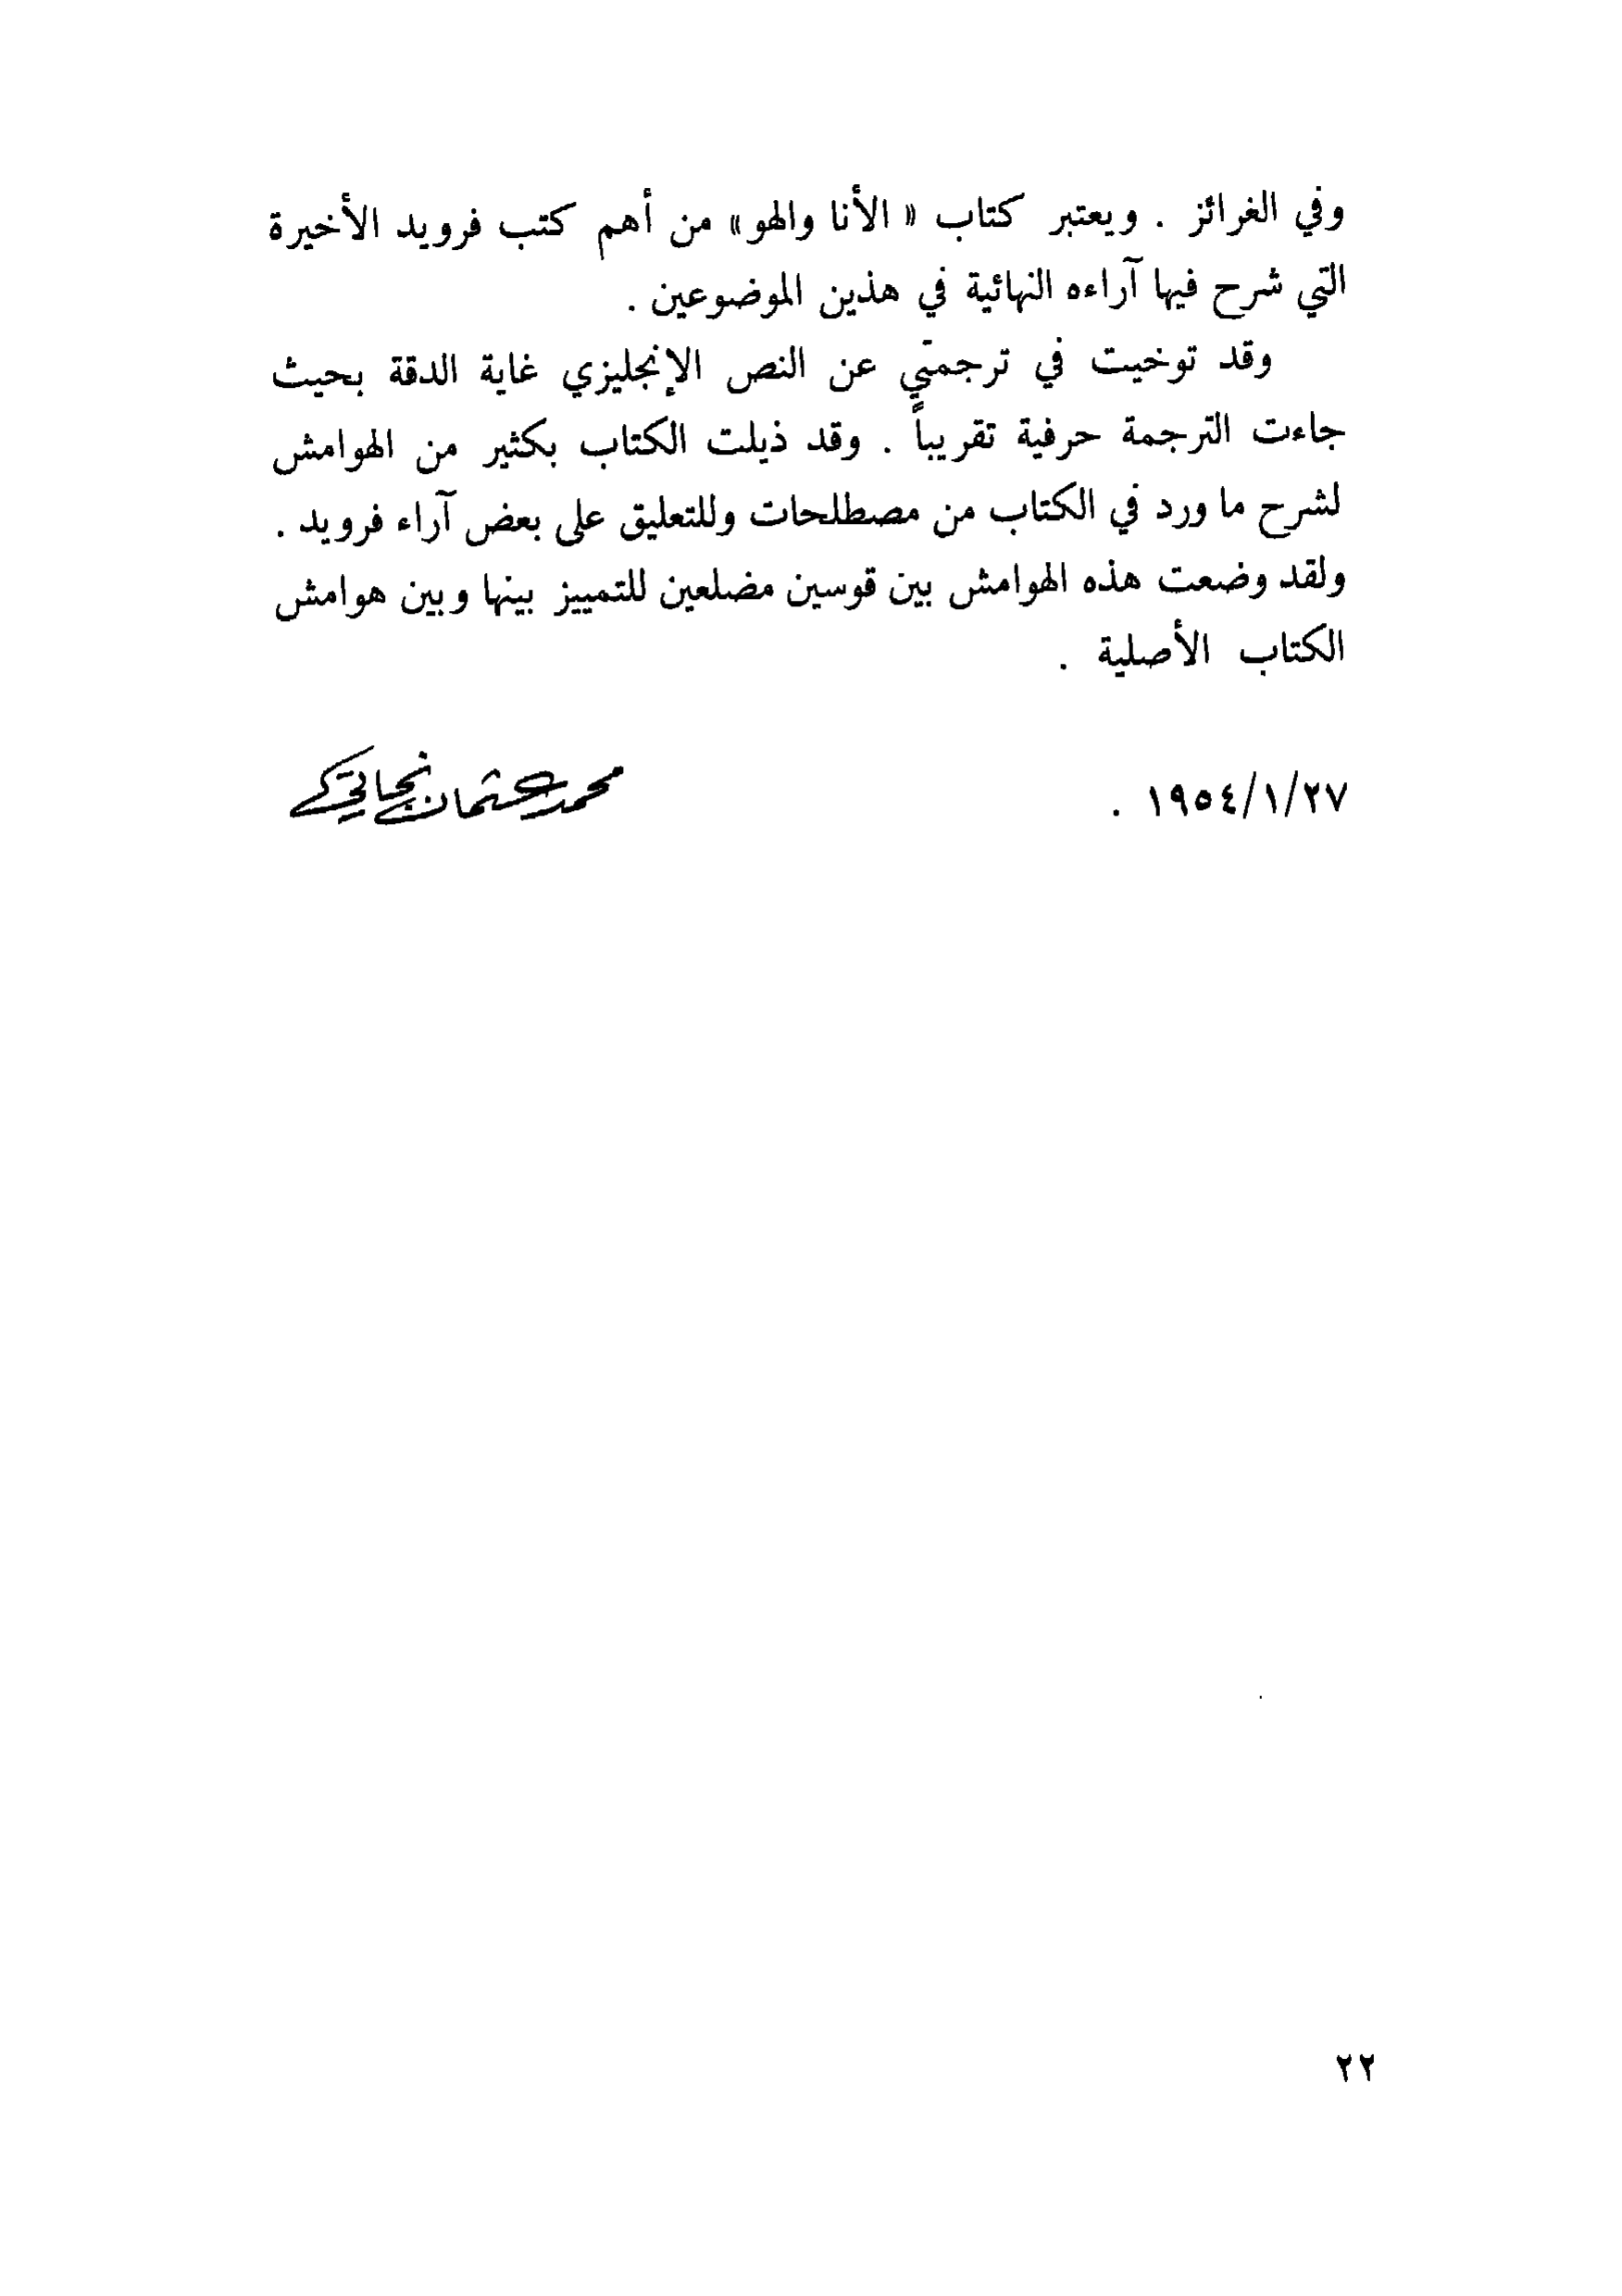 وفي الغرائز . ويعتبر كتاب « الأنا والهو» من أهم كتب فرويد الأخيرة
التي شرح فيها آراءه النهائية في هذين الموضوعين .
وقد توخيت في ترجمتي عن النص الإنجليزي غاية الدقة بحيث
جاءت الترجمة حرفية تقريباً . وقد ذيلت الكتاب بكثير من الهوامش
لشرح ما ورد في الكتاب من مصطلحات وللتعليق على بعض آراء فرويد .
ولقد وضعت هذه الهوامش بين قوسين مضلعين للتمييز بينها وبين هوامش
الكتاب الأصلية .
٢٧/١/١٩٥٤ . محمد عثمان نجاتي
٢٢